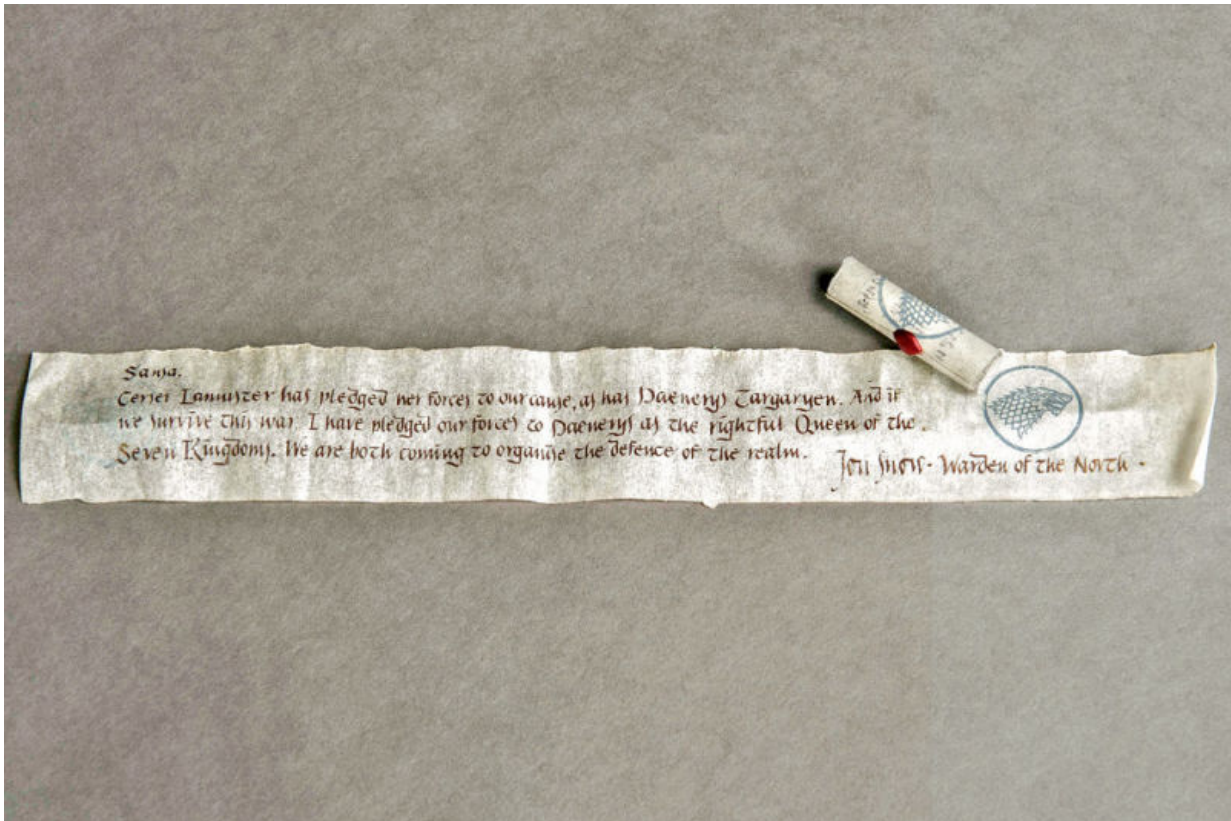 Sansa.
Cersei Lannister has pledged her forces to our cause, as has Daenerys Targaryen. And if
we survive this war, I have pledged our forces to Daenerys as the rightful Queen of the
Seven Kingdoms. We are both coming to organise the defence of the realm.
Jon Snow · Warden of the North ·